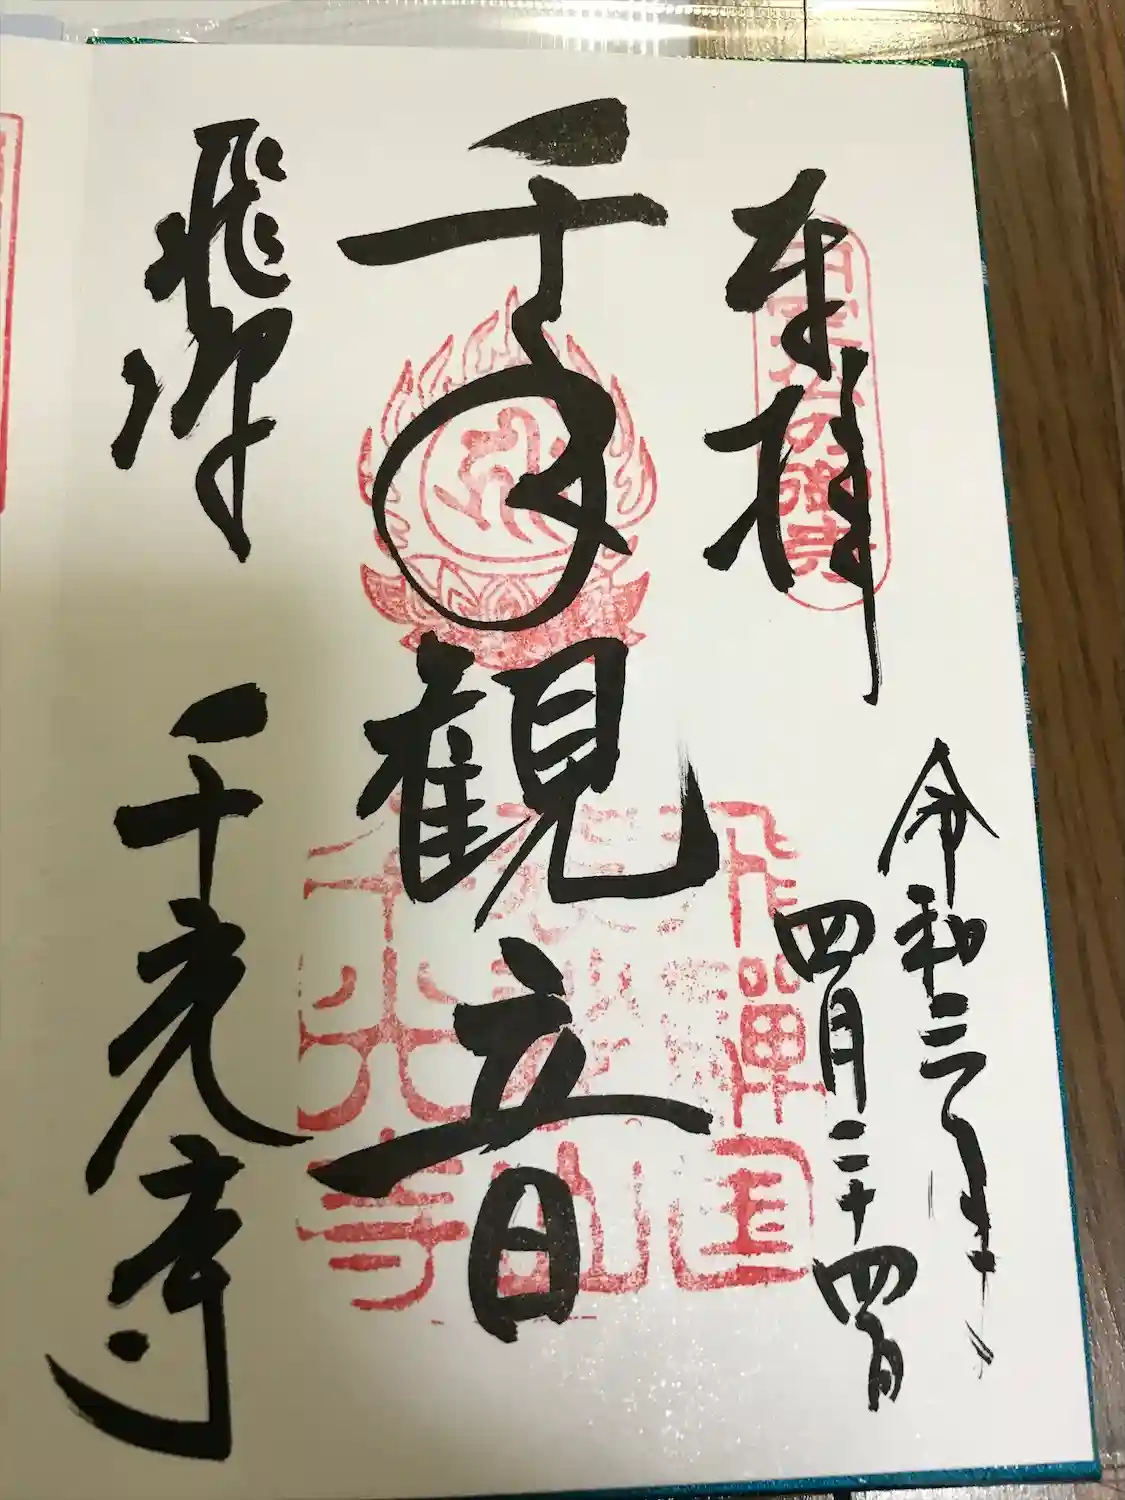 奉拝
令和三年
四月二十四日
千手観音
飛州
千光寺
飛禅国
袈裟山
千光寺